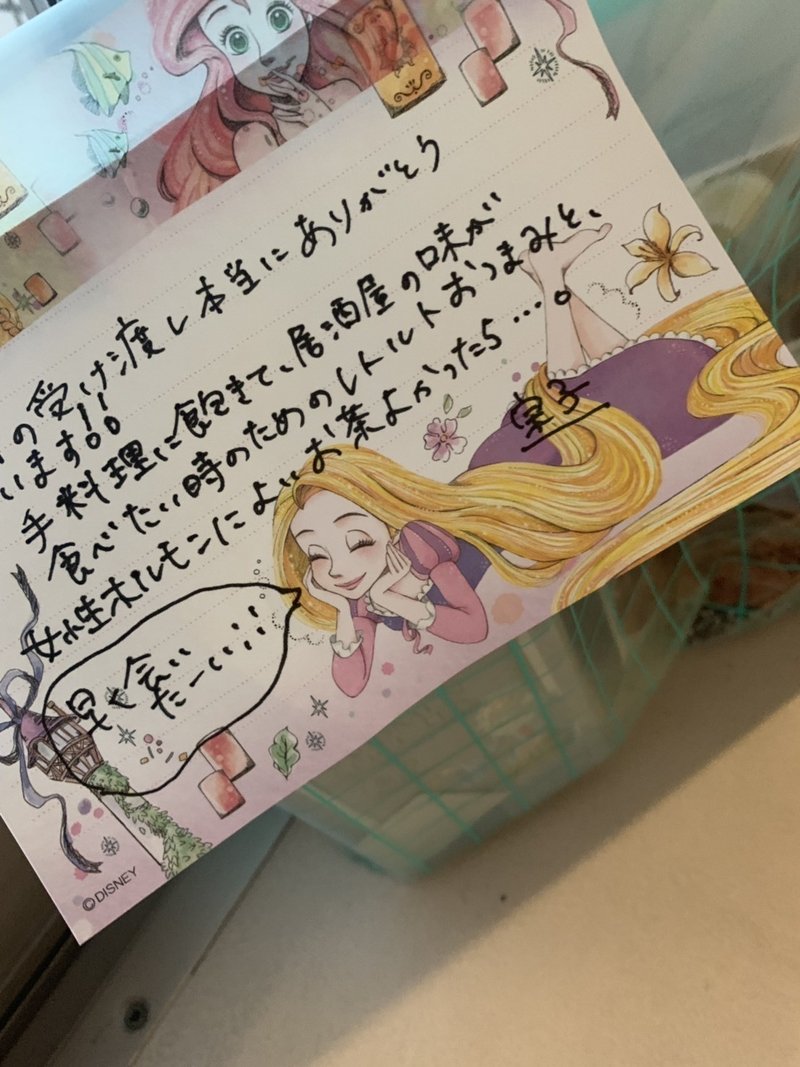 の受け渡し本当にありがとう
います!!
手料理に飽きて、居酒屋の味が
食べたい時のためのレトルトおつまみと、
女性ホルモンによいお茶よかったら…。
実子
早く会い
たーい!!
©DISNEY